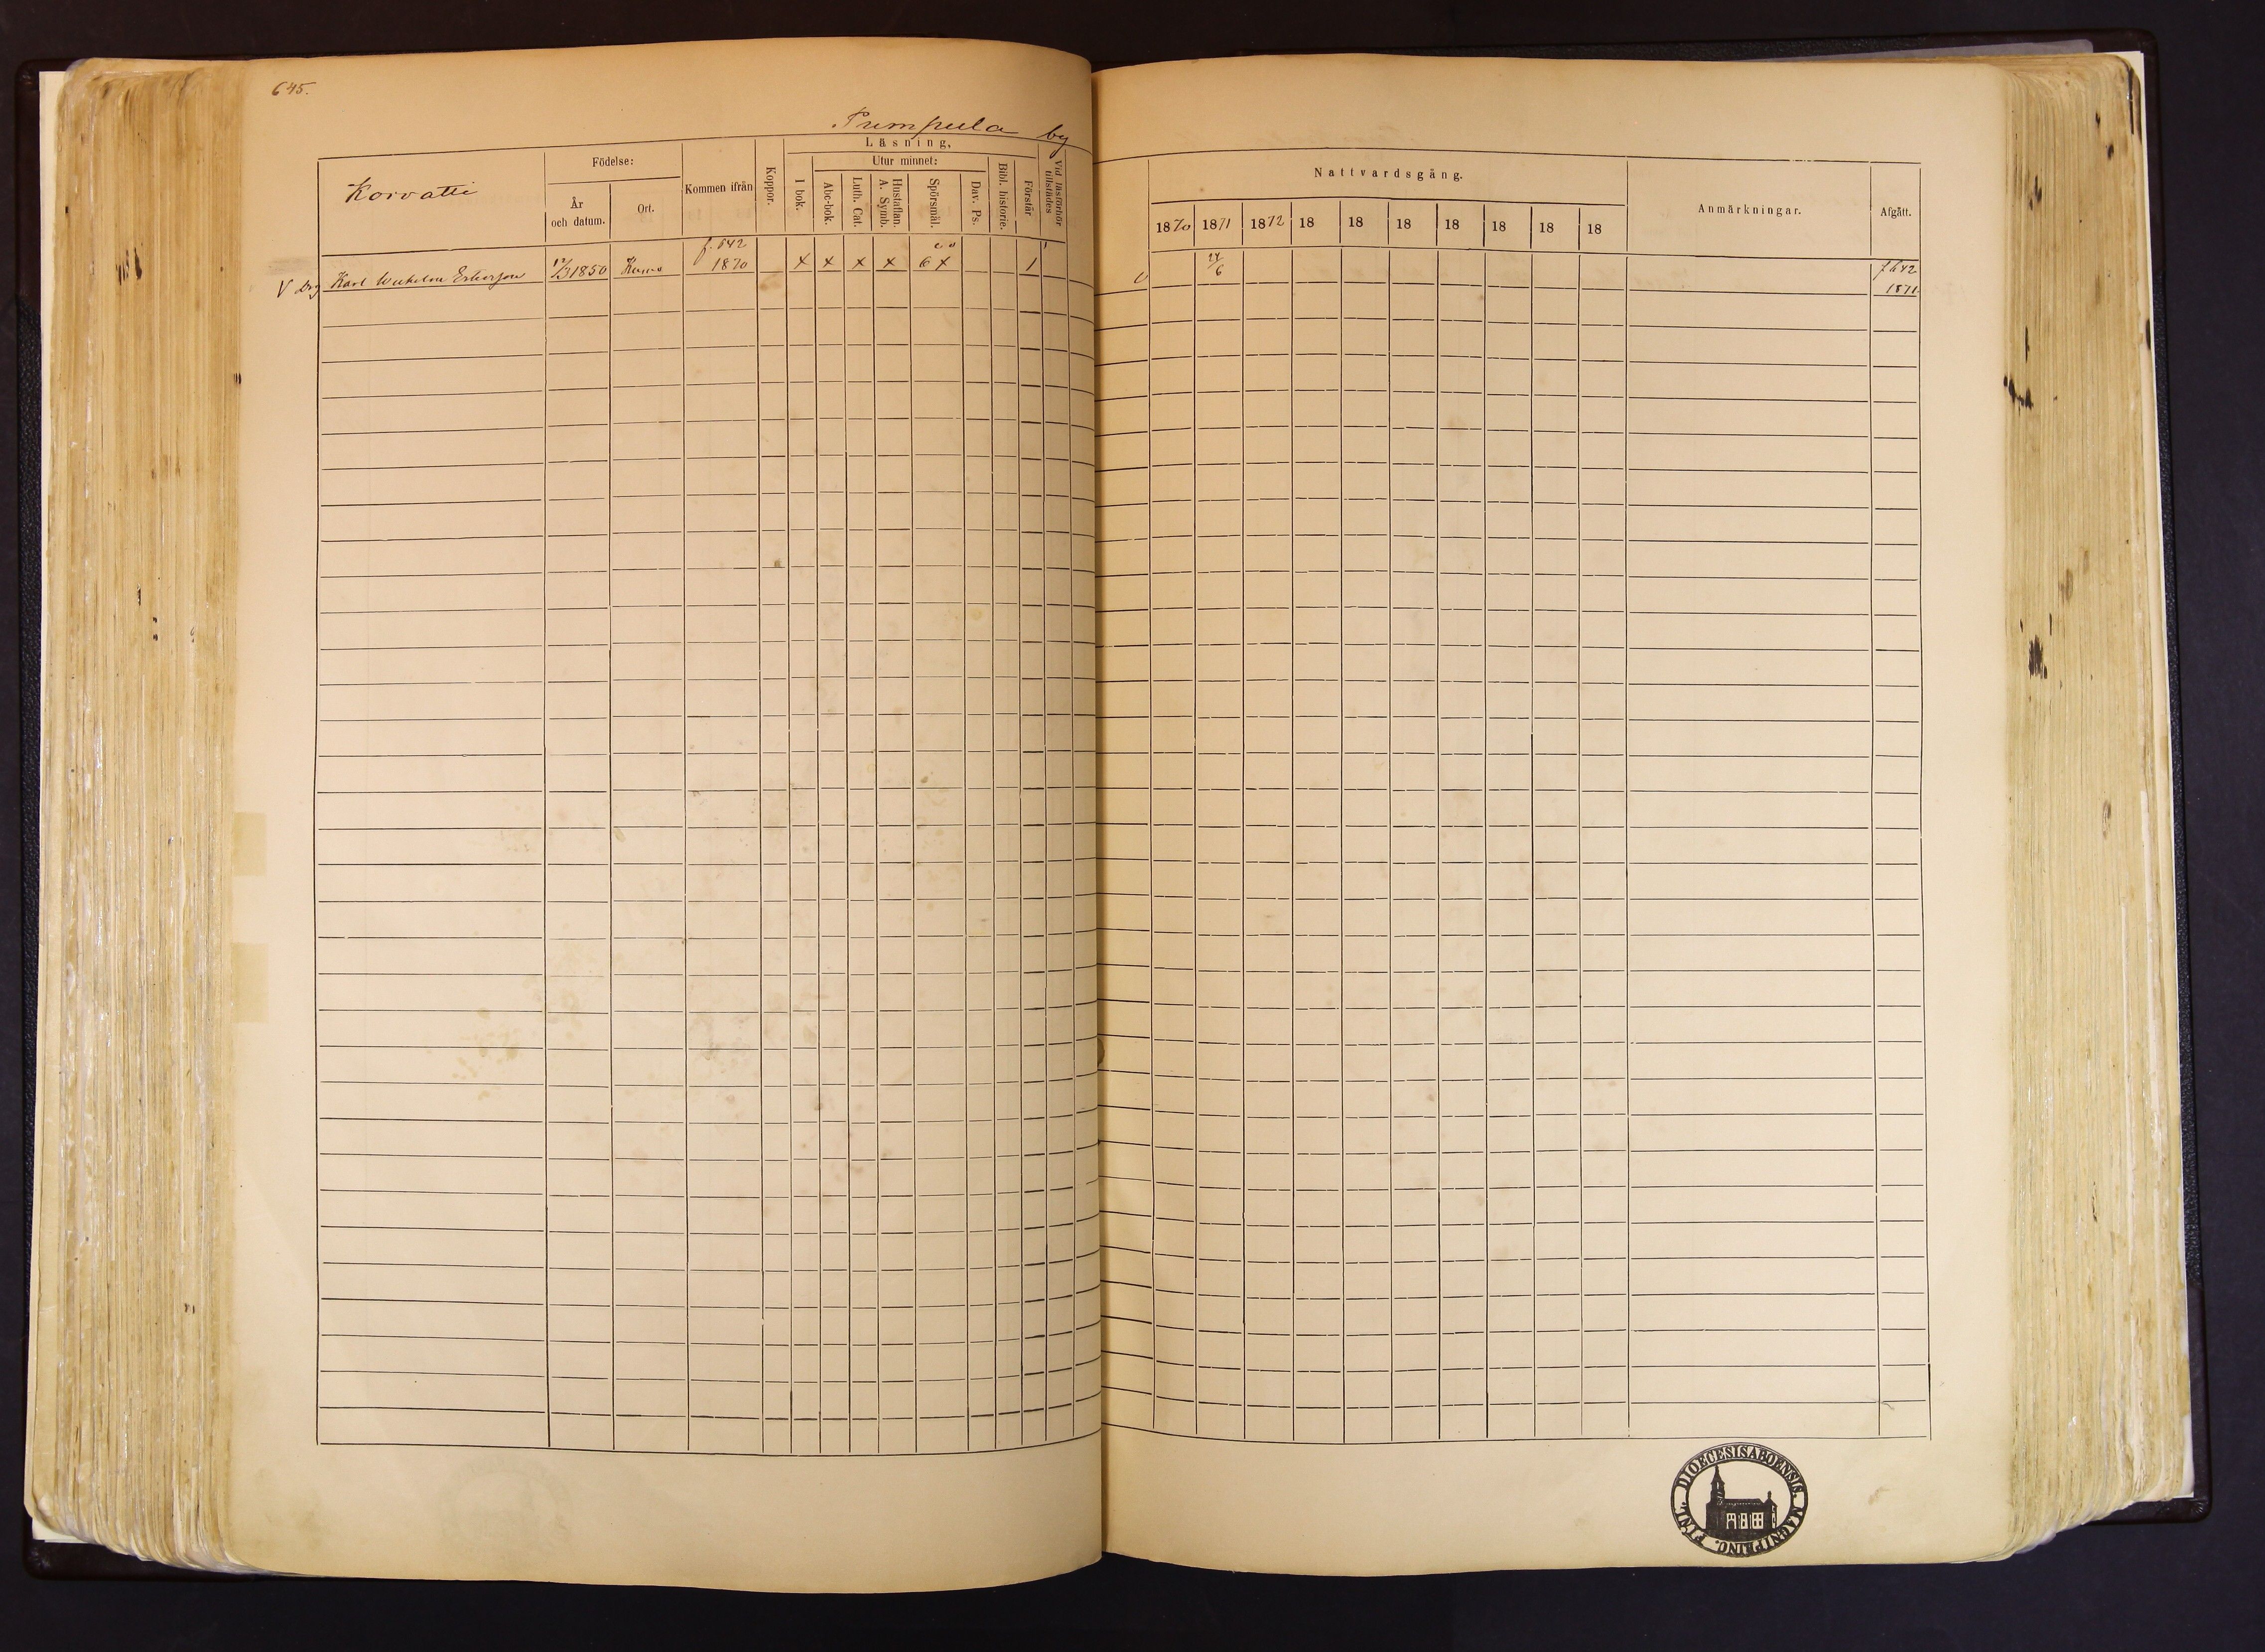 645.
Pumpula by
Korvatti
Födelse:
År
och datum.
Ort.
Kommen ifrån
Koppor.
Läsning,
I bok.
Utur minnet:
Abc-bok.
Luth. Cat.
Hustaflan.
A. Symb.
Spörsmål.
Dav. Ps.
Bibl. historie.
Förstår
Vid läsförhör
tillstädes
Nattvardsgång.
1870 1871 1872 18 18 18 18 18 18 18
Anmärkningar.
Afgått.
f. 642
V Drg Karl Wilhelm 1850 Kumo 1870 x x x x 6 x 1
27/6
f 642
1871
DIOECESIS ABOENSIS. MAGNI PRINC. FINL.